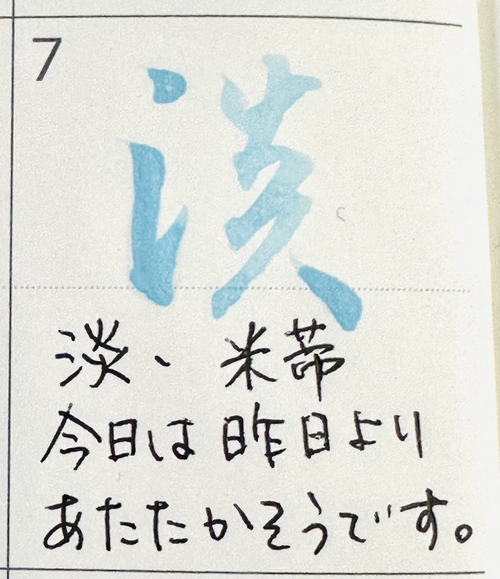 7
淡
淡、米帯
今日は昨日より
あたたかそうです。